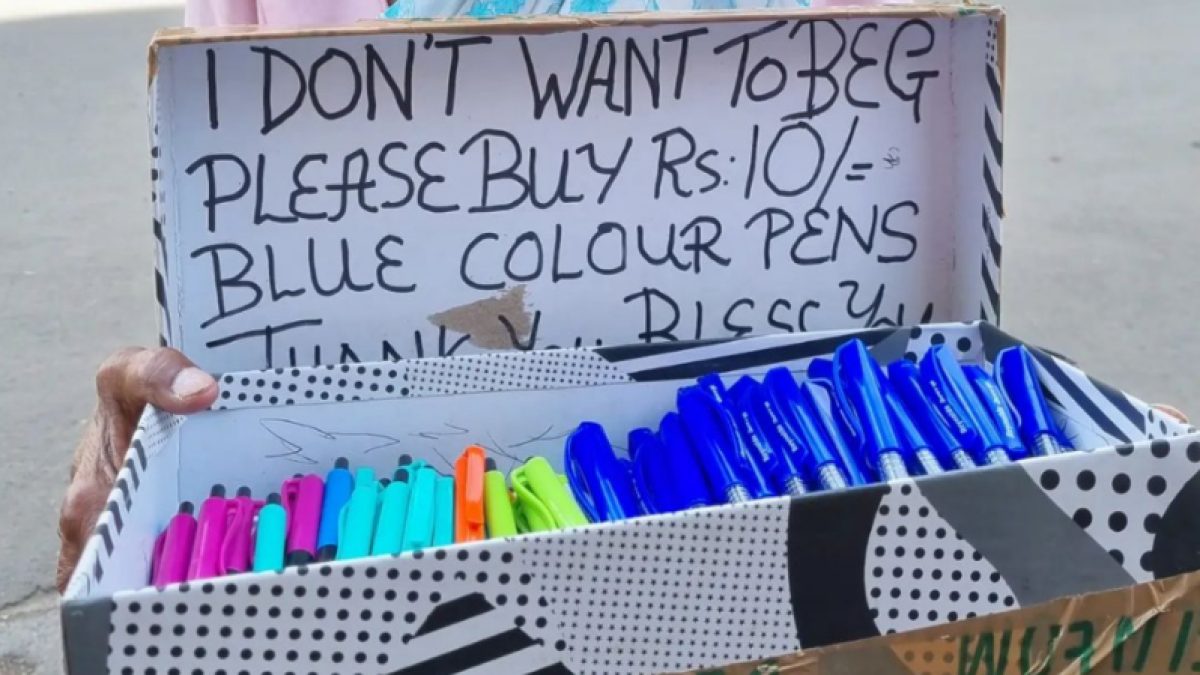 I DON'T WANT To BEG
PLEASE BUY Rs: 10/=
BLUE COLOUR PENS
THANK You BLESS You